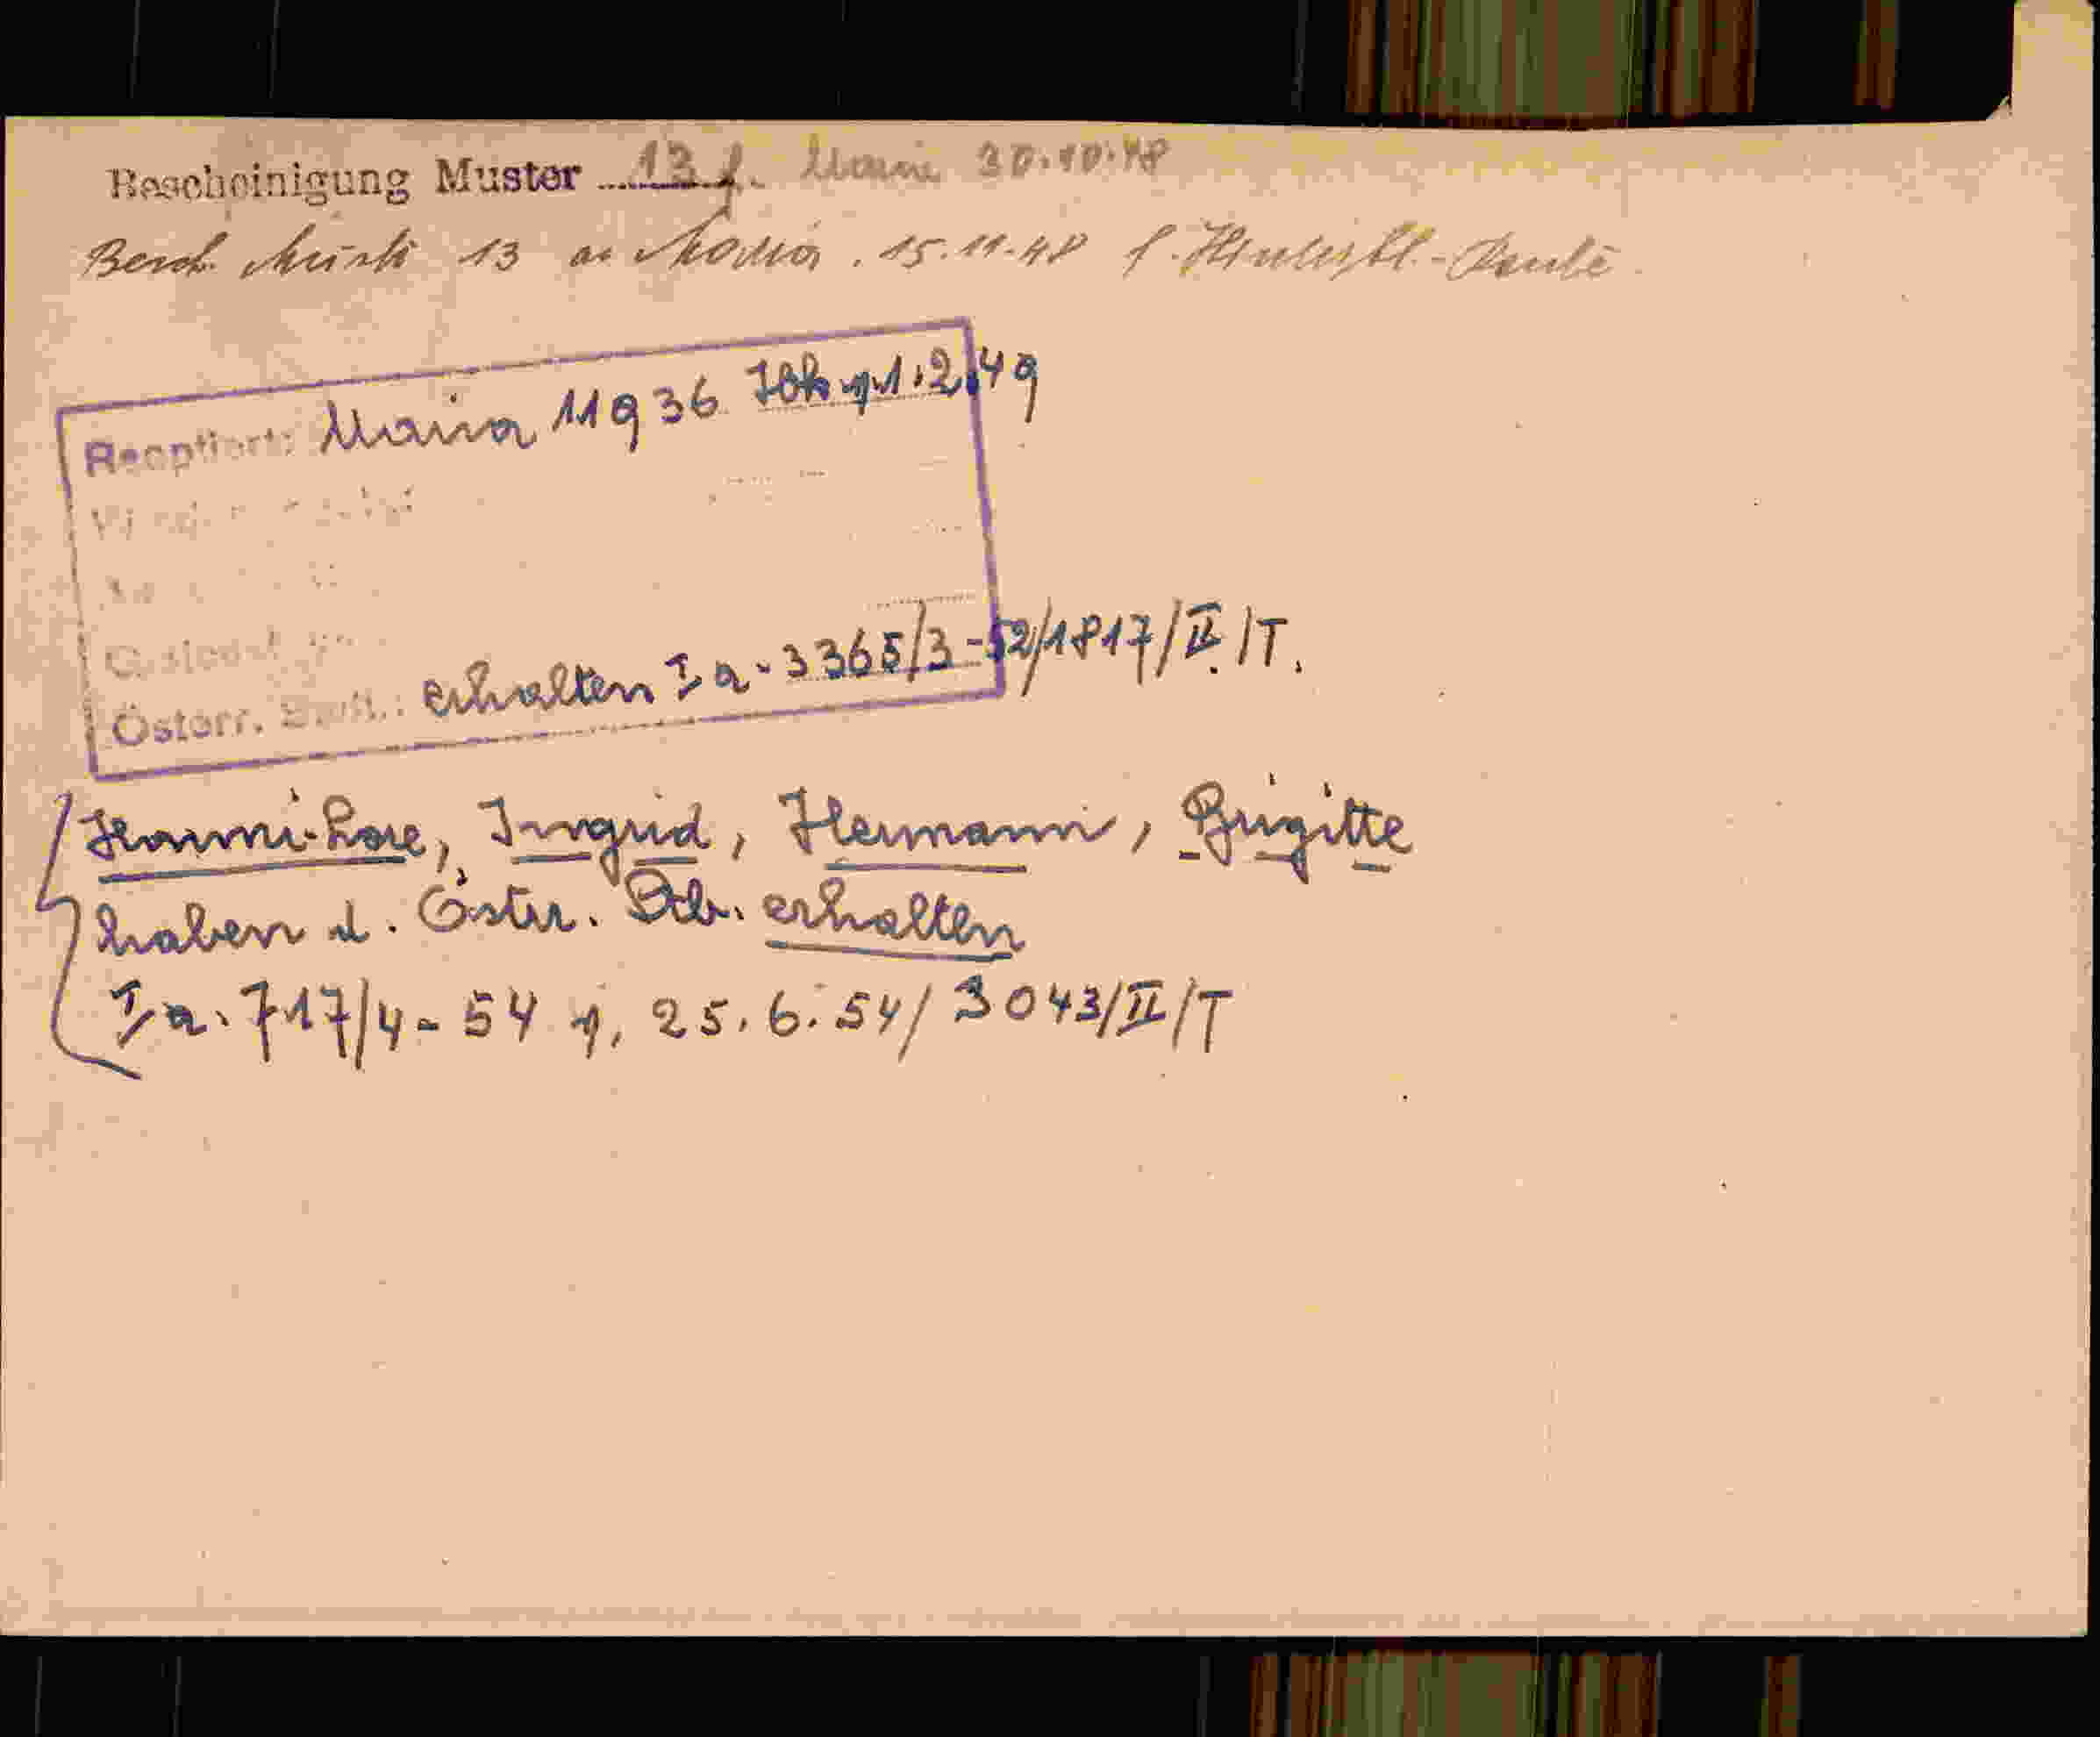 Bescheinigung Muster 13 f. Maria 30.10.48
Besch. Muster 13 an Maria. 15.11.48 f. Hinterbl.-Rente
Reoptiert: Maria 11936 Ibk v. 1.2.49
Österr. : erhalten Ia-3365/3-52/1817/II/T.
Hanni-Lore, Ingrid, Hermann, Brigitte
haben d. Österr. Stb. erhalten
Ia-717/4-54 v. 25.6.54/3043/II/T